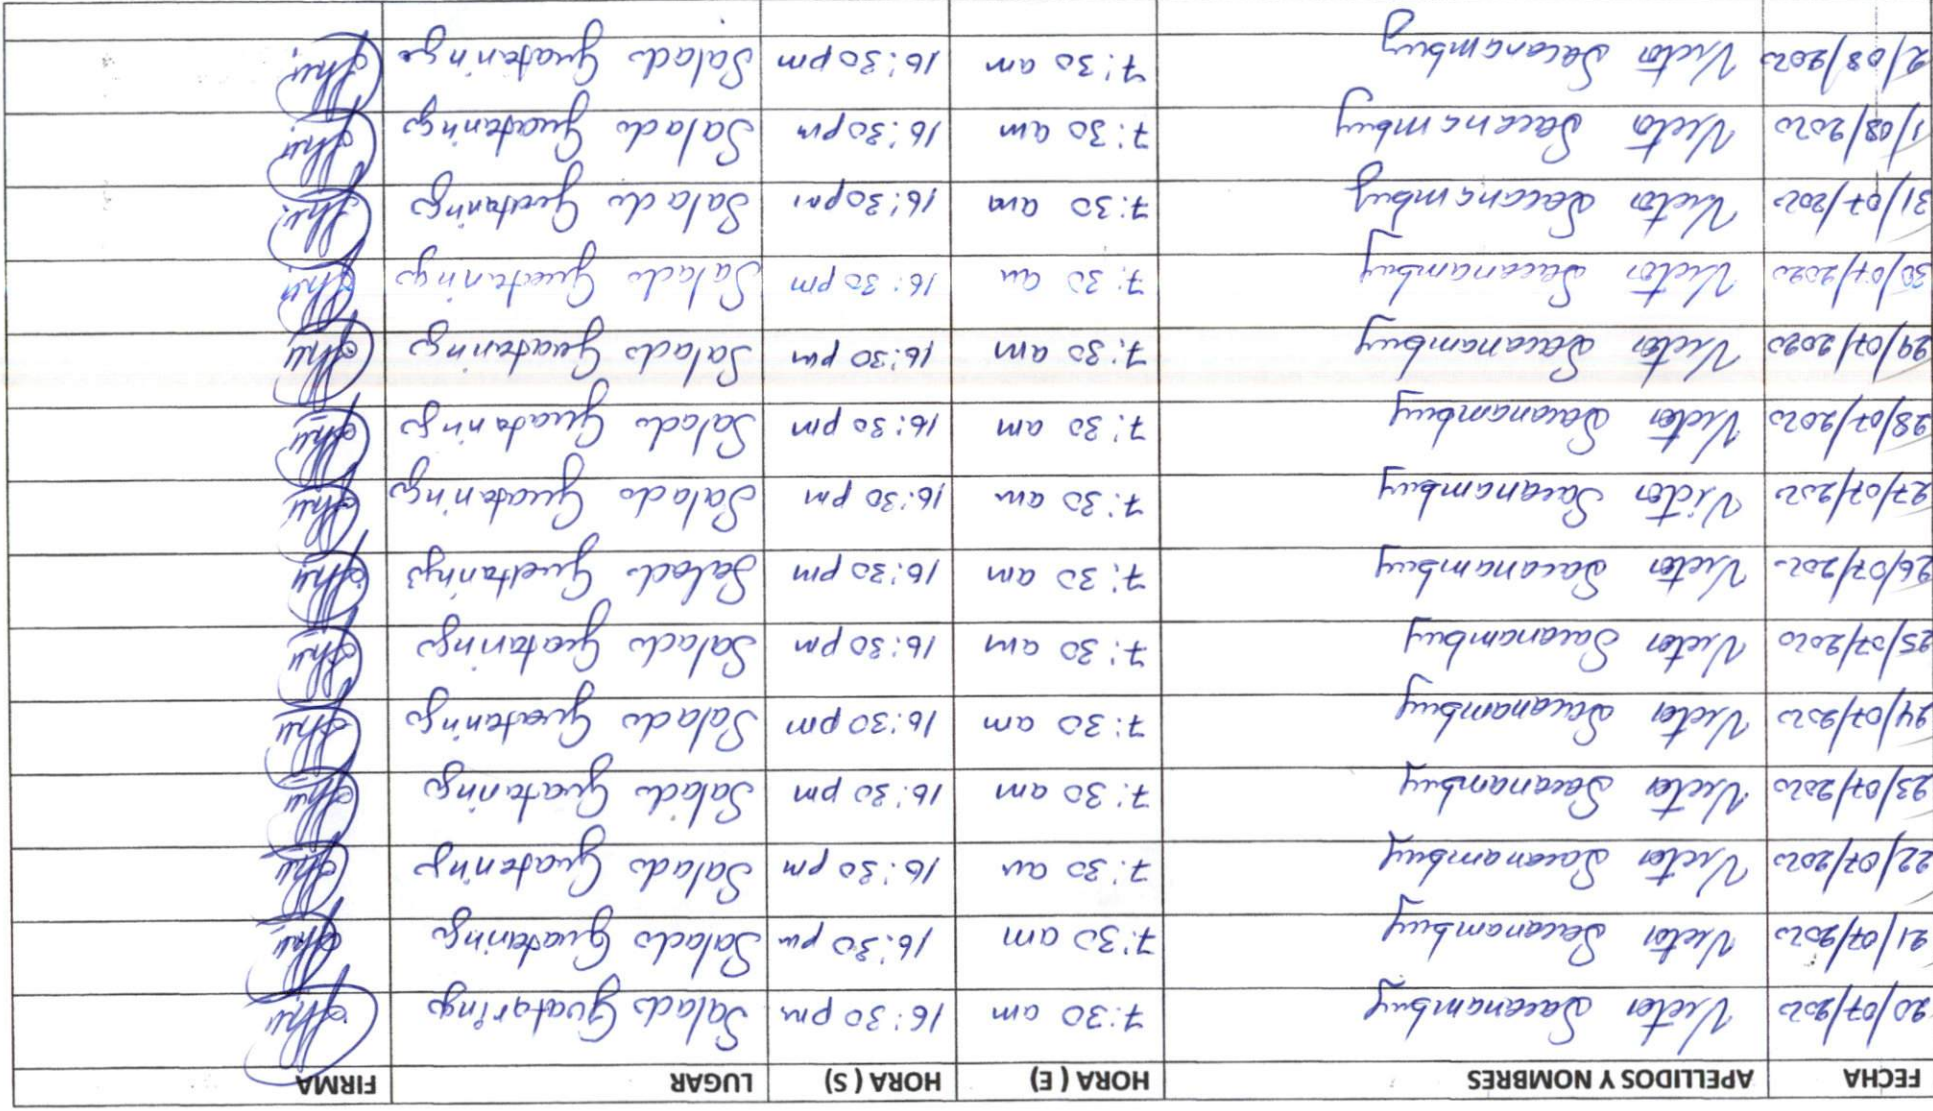 FECHA APELLIDOS Y NOMBRES HORA ( E ) HORA ( S ) LUGAR FIRMA
20/07/2020 Victor Sacanambuy 7:30 am 16:30 pm Salado Guataringo
21/07/2020 Victor Sacanambuy 7:30 am 16:30 pm Salado Guataringo
22/07/2020 Victor Sacanambuy 7:30 am 16:30 pm Salado Guataringo
23/07/2020 Victor Sacanambuy 7:30 am 16:30 pm Salado Guataringo
24/07/2020 Victor Sacanambuy 7:30 am 16:30 pm Salado Guataringo
25/07/2020 Victor Sacanambuy 7:30 am 16:30 pm Salado Guataringo
26/07/2020 Victor Sacanambuy 7:30 am 16:30 pm Salado Guataringo
27/07/2020 Victor Sacanambuy 7:30 am 16:30 pm Salado Guataringo
28/07/2020 Victor Sacanambuy 7:30 am 16:30 pm Salado Guataringo
29/07/2020 Victor Sacanambuy 7:30 am 16:30 pm Salado Guataringo
30/07/2020 Victor Sacanambuy 7:30 am 16:30 pm Salado Guataringo
31/07/2020 Victor Sacanambuy 7:30 am 16:30 pm Salado Guataringo
1/08/2020 Victor Sacanambuy 7:30 am 16:30 pm Salado Guataringo
2/08/2020 Victor Sacanambuy 7:30 am 16:30 pm Salado Guataringo